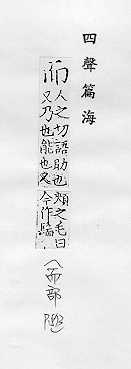 四聲篇海
而
人之切語助也
又乃也能也又
頰之毛曰
今作
(而部